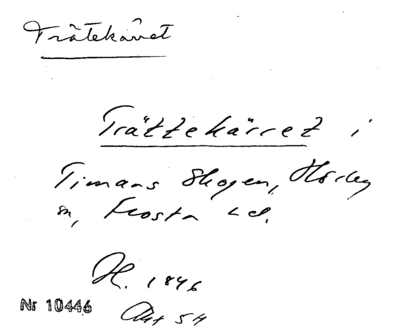 Trätekärret
Trättekärret i
Timans Skogen, Hörby
sn, Frosta hd.
H. 1846
Akt 54
Nr 10446